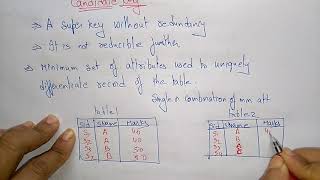 Candidate key
→ A super key without redundancy
→ It is not reducible further
→ Minimum set of attributes used to uniquely
differentiate record of the table.
Single or combination of min att
table1
table2
Sid Sname Marks
S1 A 40
S2 A 40
S3 B 50
S4 B 50
Sid Sname Marks
S1 A 4
S2 B
S3
S4 C